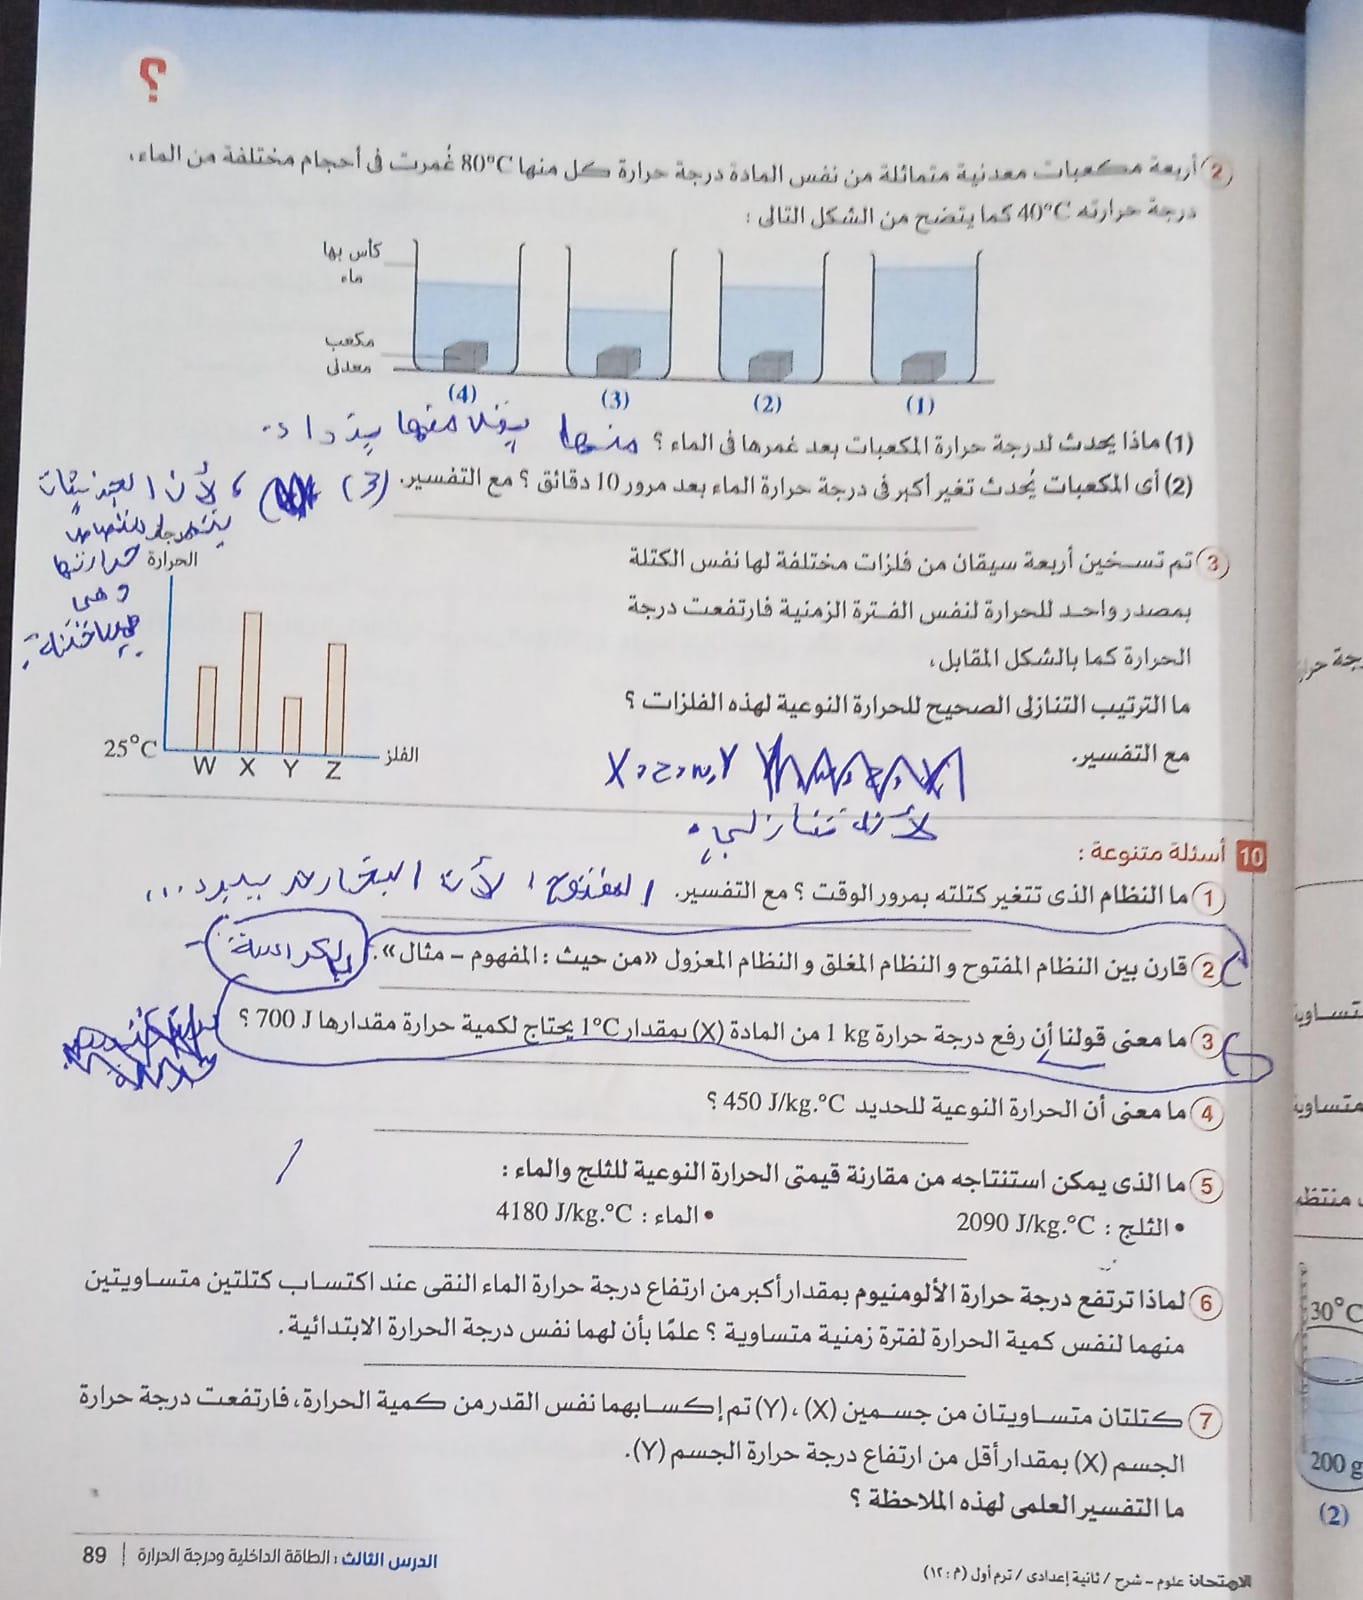 ؟
2 أربعة مكعبات معدنية متماثلة من نفس المادة درجة حرارة كل منها 80°C غُمرت فى أحجام مختلفة من الماء،
درجة حرارته 40°C كما يتضح من الشكل التالى :
كأس بها
ماء
مكعب
معدنى
(4) (3) (2) (1)
(1) ماذا يحدث لدرجة حرارة المكعبات بعد غمرها فى الماء ؟ منها يقل منها يزداد.
(2) أى المكعبات يُحدث تغير أكبر فى درجة حرارة الماء بعد مرور 10 دقائق ؟ مع التفسير. (3) ، لأن الجزيئات
حرارتها
وهى
3 تم تسخين أربعة سيقان من فلزات مختلفة لها نفس الكتلة
بمصدر واحد للحرارة لنفس الفترة الزمنية فارتفعت درجة
الحرارة كما بالشكل المقابل،
ما الترتيب التنازلى الصحيح للحرارة النوعية لهذه الفلزات ؟
مع التفسير.
Y, W, Z, X
لأنه تنازلي.
درجة
الحرارة
25°C
W X Y Z
الفلز
10 أسئلة متنوعة :
1 ما النظام الذى تتغير كتلته بمرور الوقت ؟ مع التفسير. المفتوح، لأن البخار بيبرد...
2 قارن بين النظام المفتوح و النظام المغلق و النظام المعزول «من حيث : المفهوم – مثال». الكراسة
3 ما معنى قولنا أن رفع درجة حرارة 1 kg من المادة (X) بمقدار 1°C يحتاج لكمية حرارة مقدارها 700 J ؟
4 ما معنى أن الحرارة النوعية للحديد 450 J/kg.°C ؟
5 ما الذى يمكن استنتاجه من مقارنة قيمتى الحرارة النوعية للثلج والماء :
• الثلج : 2090 J/kg.°C • الماء : 4180 J/kg.°C
6 لماذا ترتفع درجة حرارة الألومنيوم بمقدار أكبر من ارتفاع درجة حرارة الماء النقى عند اكتساب كتلتين متساويتين
منهما لنفس كمية الحرارة لفترة زمنية متساوية ؟ علمًا بأن لهما نفس درجة الحرارة الابتدائية.
7 كتلتان متساويتان من جسمين (X)، (Y) تم إكسابهما نفس القدر من كمية الحرارة، فارتفعت درجة حرارة
الجسم (X) بمقدار أقل من ارتفاع درجة حرارة الجسم (Y).
ما التفسير العلمى لهذه الملاحظة ؟
الامتحان علوم – شرح / ثانية إعدادى / ترم أول (م : ١٢)
الدرس الثالث : الطاقة الداخلية ودرجة الحرارة | 89
متساوية
30°C
200 g
(2)